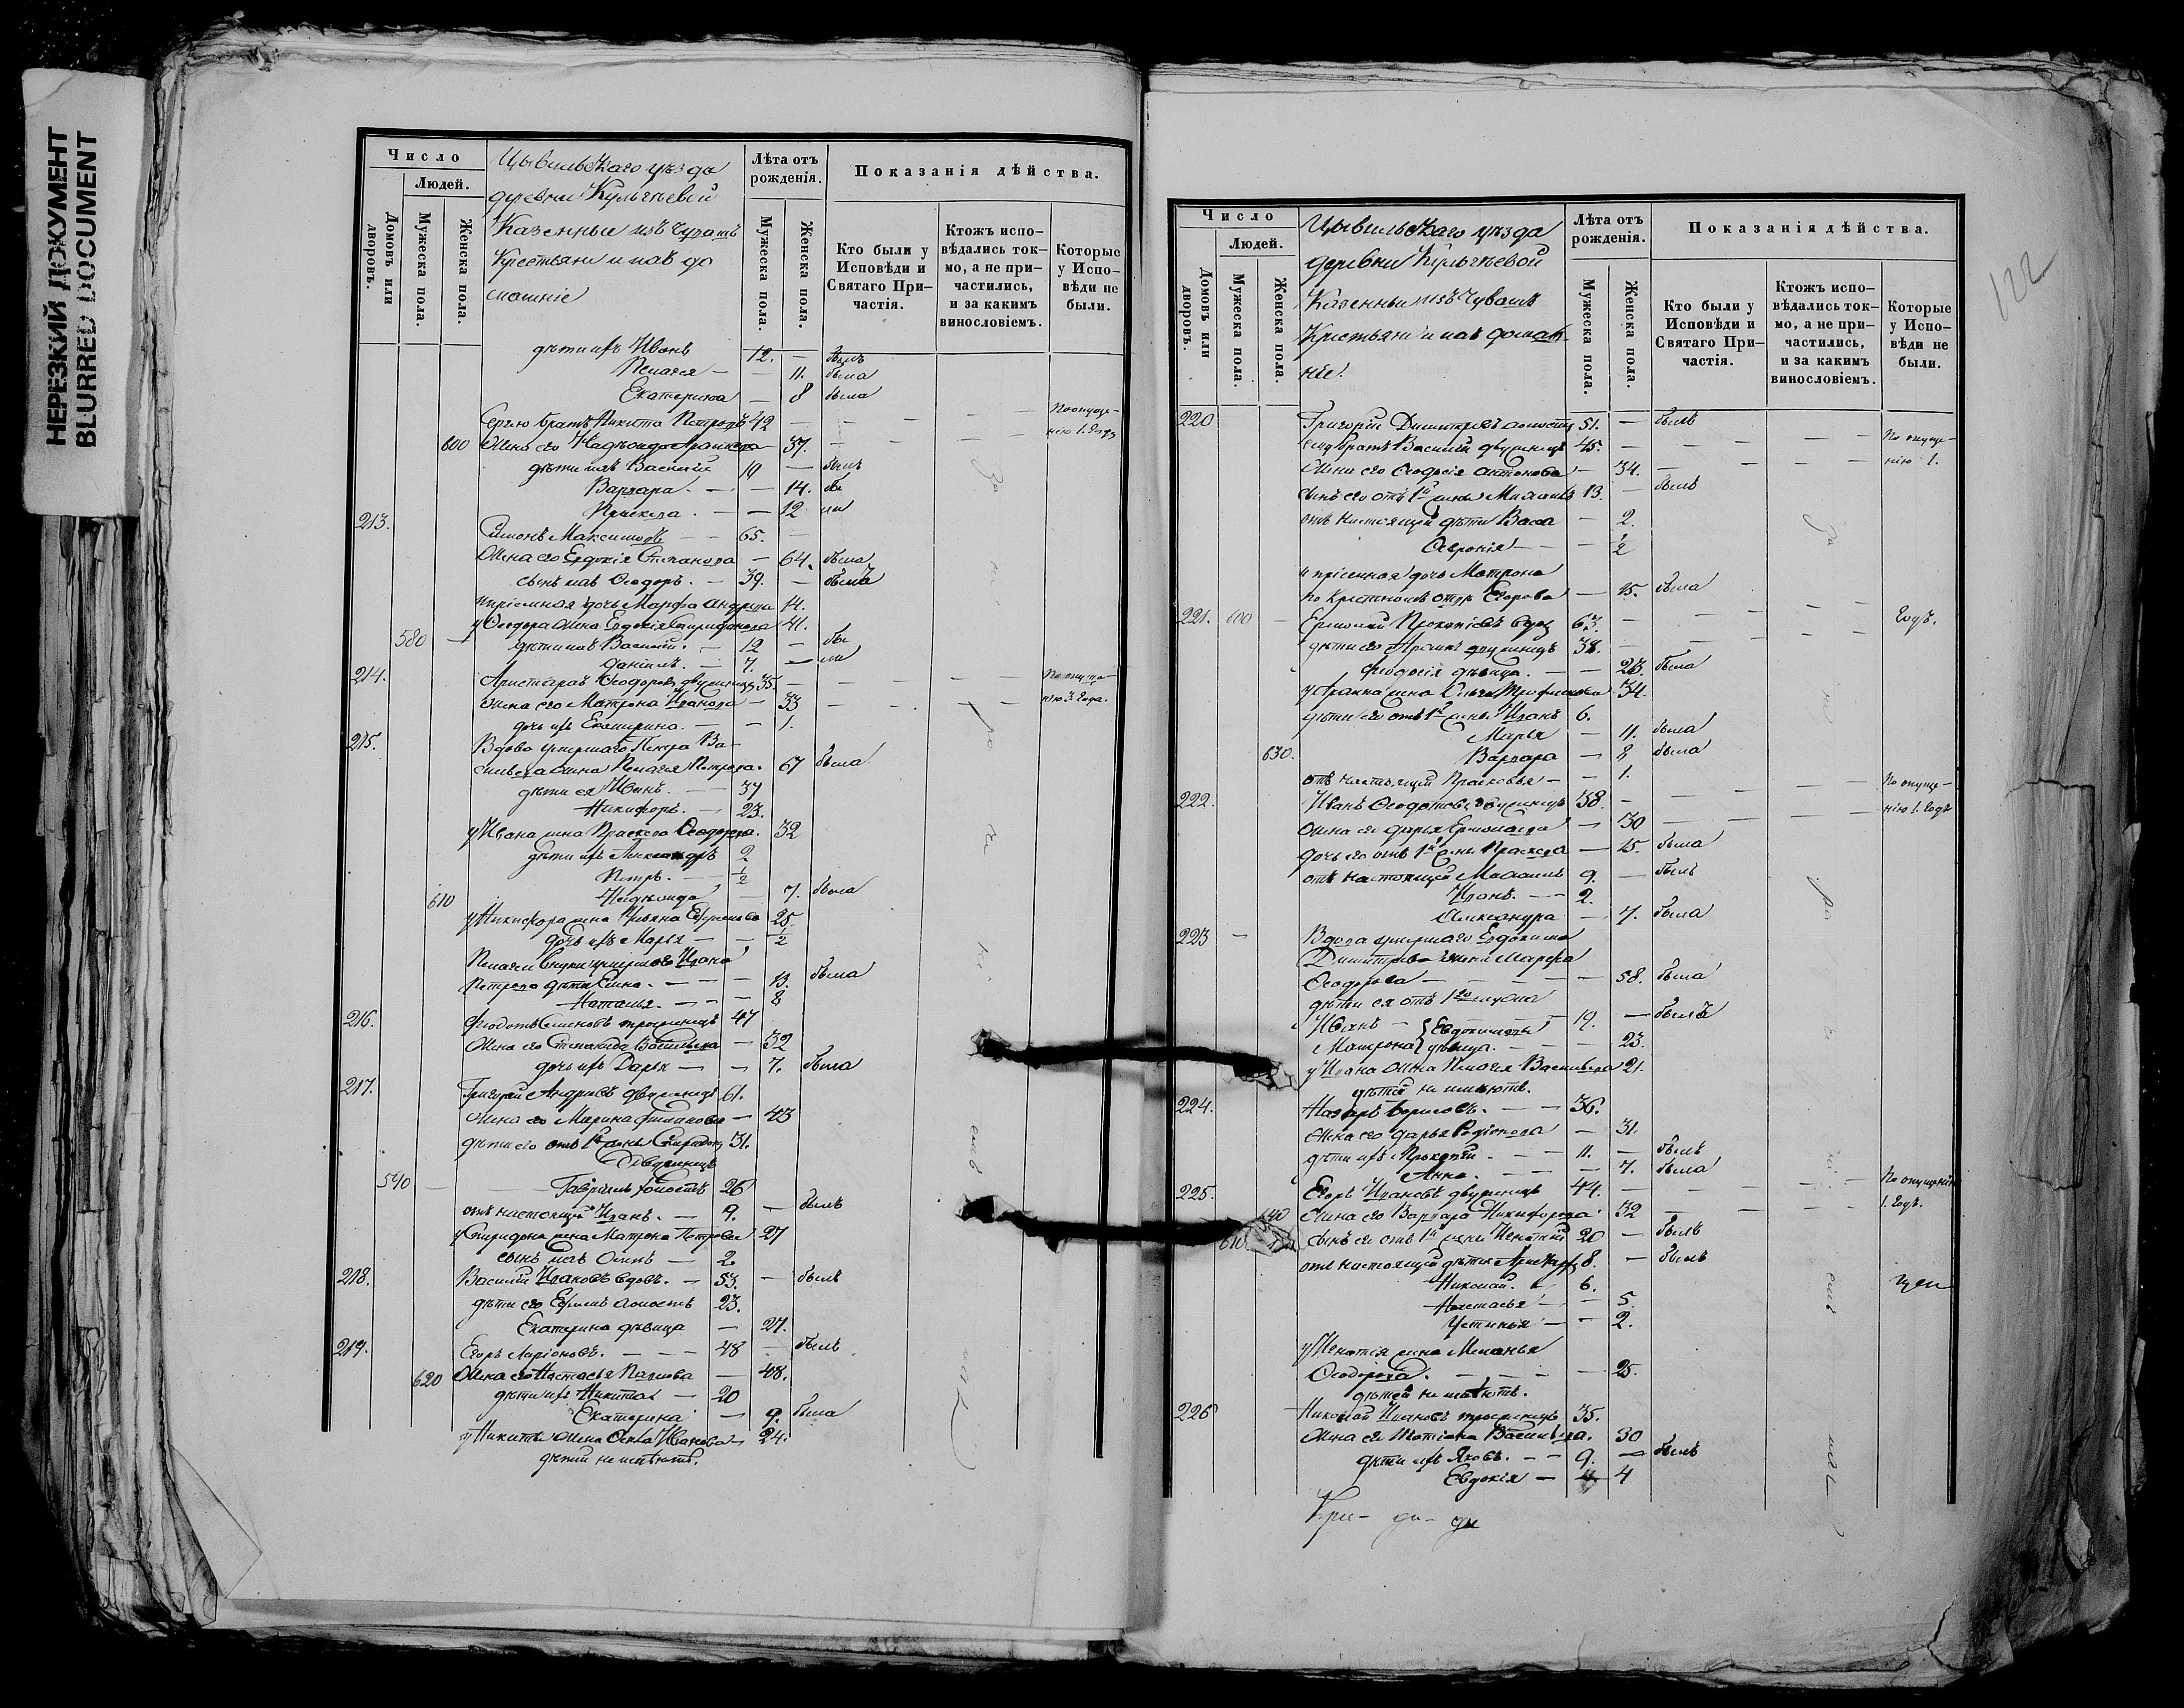 НЕРЕЗКИЙ ДОКУМЕНТ
BLURRED DOCUMENT
Число
Людей.
Домовъ или дворовъ.
Мужеска пола.
Женска пола.
Цывильскаго уѣзда
деревни Кульгѣевой
Казенные изъ Чувашъ
Крестьяне и ихъ до
машніе
Лѣта отъ рожденія.
Мужеска пола.
Женска пола.
Показанія дѣйства.
Кто были у Исповѣди и Святаго Причастія.
Ктожъ исповѣдались токмо, а не причастились, и за какимъ винословіемъ.
Которые у Исповѣди не были.
дѣти ихъ Иванъ 12. — былъ
Пелагея — — 11. была
Екатерина — 8 была
братъ Никита Петровъ 42 — — — По опуще-
600 Жена его — 37. — — — нію 1. году
дѣти ихъ Василій 19 — былъ
Варвара. — — 14. бы
Праскева. — — 12 ли
213. Симонъ Максимовъ — 65. —
Жена его Евдокія Степанова — 64. была
сынъ ихъ Ѳеодоръ. — 39. — была
пріемная дочь Марфа Андреева 14.
у Ѳеодора жена Евдокія Спиридонова 41.
580 — дѣти ихъ Василій. — 12 — бы
Даніилъ. — 7. — ли
214. Аристархъ Ѳеодоровъ двуженецъ 35. — — — По опуще-
жена его Матрона Иванова — 33 — — — нію 3. года.
дочь ихъ Екатерина. — — 1.
215. Вдова умершаго Петра Ва-
сильева жена Пелагея Петрова. 67 была
дѣти ея Иванъ. — 37
Никифоръ. — 23.
у Ивана жена Праскева Ѳеодорова. 32
дѣти ихъ Александръ 2
Петръ. — 1/2
610 — 7. была
у Никифора жена Ефремова 25.
дочь ихъ Марья — — 1/2
Пелагеи внуки умершаго Ивана
Петрова дѣти Елена. — — — 13. была
Наталья. — — — 8
216. Ѳеодотъ Семеновъ троеженецъ 47
Жена его Степанида Васильева — 32
дочь ихъ Дарья — — 7. была
217. Григорій Андреевъ двуженецъ 61.
Жена его Марина — 43
дѣти его отъ 1й жены Спиридонъ 31.
двуженецъ
590 — Гавріилъ холостъ 26
отъ настоящей Иванъ. — 9. — былъ
у Спиридона жена Матрона Петрова 27
сынъ ихъ — 2.
218. Василій Ивановъ вдовъ. — 53. — былъ
дѣти его холостъ 23.
Екатерина дѣвица — 27.
219. Егоръ Ларіоновъ. — — — 48 — былъ
620 Жена его Настасья Павлова — 48.
дѣти ихъ Никита — 20
Екатерина — 9. была
у Никиты жена Иванова 24.
дѣтей не имѣютъ.
122
Число
Людей.
Домовъ или дворовъ.
Мужеска пола.
Женска пола.
Цывильскаго уѣзда
деревни Кульгѣевой
Казенные изъ Чувашъ
Крестьяне и ихъ домаш-
ніе.
Лѣта отъ рожденія.
Мужеска пола.
Женска пола.
Показанія дѣйства.
Кто были у Исповѣди и Святаго Причастія.
Ктожъ исповѣдались токмо, а не причастились, и за какимъ винословіемъ.
Которые у Исповѣди не были.
220 Григорій Димитріевъ холостъ 51. — былъ
братъ Василій двуженецъ 45. — — — По опуще-
Жена его Ѳеодосія Антонова — 34. — — — нію 1.
сынъ его отъ 1й жены Михаилъ 13. — былъ
отъ настоящей дѣти Васса — 2.
Февронія — — 1/2
и пріемная дочь Матрона
по крестномъ отцѣ Егорова — 15. была
221. 600 — Ермолай Прокопіевъ вдов 63. — — — годъ.
дѣти его двуженецъ 38. —
Ѳеодосія дѣвица. — — 23. была
жена Ольга Трофимова 34.
дѣти его отъ 1й жены Иванъ 6.
Марья — 11. была
630. Варвара — 8 была
отъ настоящей Прасковья — — 1.
222. Иванъ Ѳеодотовъ двуженецъ 38. — — — По опуще-
жена его Дарья Ермолаева — 30 — — — нію 1. годъ
дочь его отъ 1й жены Праскева — 15. была
отъ настоящей Михаилъ 9. — былъ
Иванъ. — 2.
Александра — 7. была
223 — Вдова умершаго Евдокима
Димитріева жена Марфа
Ѳеодорова — — — — 58. была
дѣти ея отъ 1го мужа
Иванъ — Евдокимовы 19. — былъ
Матрона дѣвица. — — 23.
у Ивана жена Пелагея Васильева 21.
дѣтей не имѣютъ.
224. Назаръ Борисовъ. — — 36.
Жена его Дарья Родіонова — 31.
дѣти ихъ Прокопій. — — 11. — былъ
Анна. — — — 7. была
225. Егоръ Ивановъ двуженецъ 44. — — — По опущенію
640 жена его Варвара Никифорова 32 — — — 1. годъ.
610 сынъ его отъ 1й жены Игнатій 20 — былъ
отъ настоящей дѣти 8. — былъ
Николай. — 6.
Настасья — — 5.
Устинья — — 2.
у Игнатія жена Меланья
Ѳеодорова. — — — — 25.
дѣтей не имѣютъ.
226 Николай Ивановъ троеженецъ 35.
Жена его Татіана Васильева. 30
дѣти ихъ Яковъ. — — 9. — былъ
Евдокія — 4